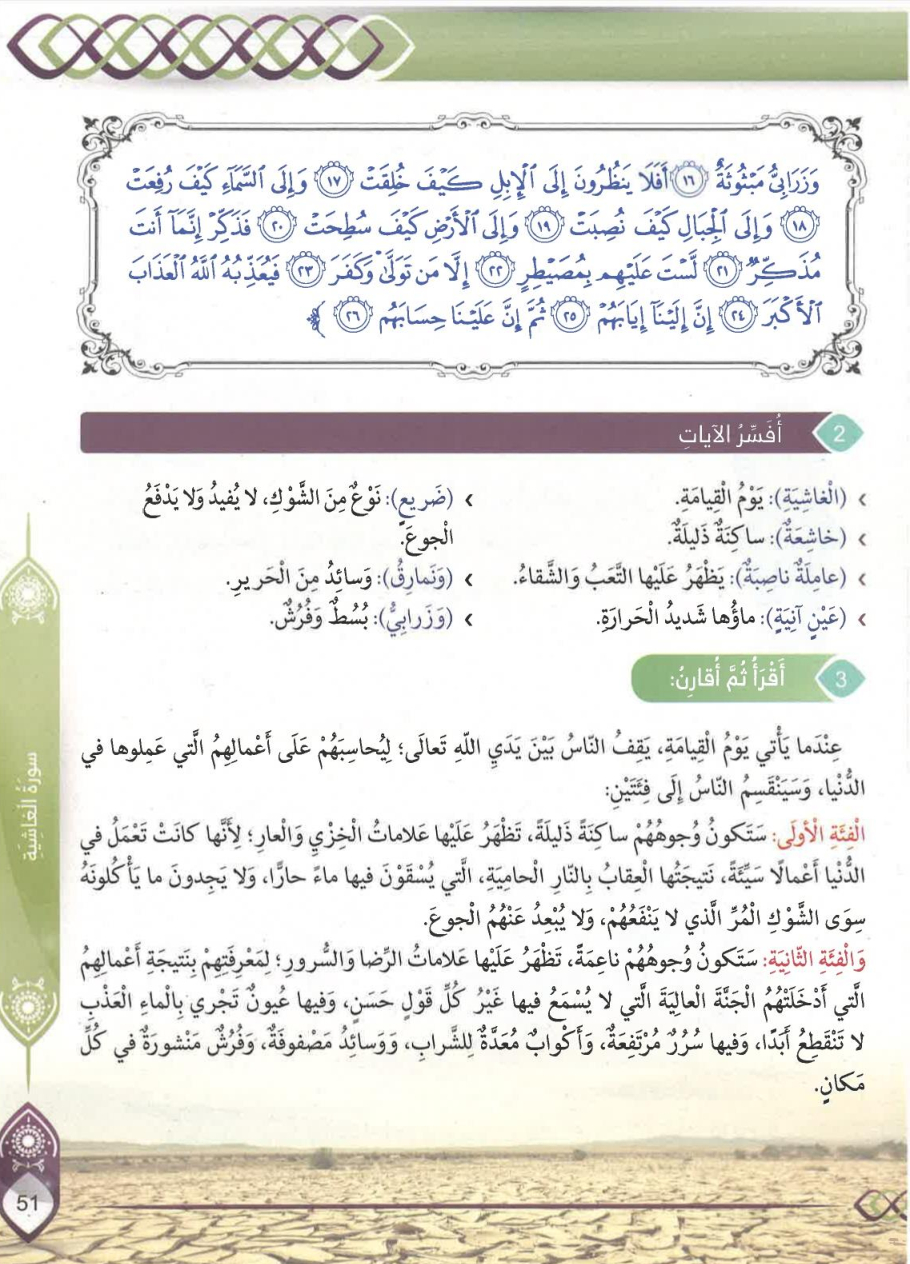 وَزَرَابِيُّ مَبْثُوثَةٌ ١٦ أَفَلَا يَنظُرُونَ إِلَى ٱلْإِبِلِ كَيْفَ خُلِقَتْ ١٧ وَإِلَى ٱلسَّمَآءِ كَيْفَ رُفِعَتْ
١٨ وَإِلَى ٱلْجِبَالِ كَيْفَ نُصِبَتْ ١٩ وَإِلَى ٱلْأَرْضِ كَيْفَ سُطِحَتْ ٢٠ فَذَكِّرْ إِنَّمَآ أَنتَ
مُذَكِّرٌ ٢١ لَّسْتَ عَلَيْهِم بِمُصَيْطِرٍ ٢٢ إِلَّا مَن تَوَلَّىٰ وَكَفَرَ ٢٣ فَيُعَذِّبُهُ ٱللَّهُ ٱلْعَذَابَ
ٱلْأَكْبَرَ ٢٤ إِنَّ إِلَيْنَآ إِيَابَهُمْ ٢٥ ثُمَّ إِنَّ عَلَيْنَا حِسَابَهُم ٢٦ ﴾
2 أُفَسِّرُ الآياتِ
(الْغاشِيَةِ): يَوْمُ الْقِيامَةِ.
(خاشِعَةٌ): ساكِنَةٌ ذَليلَةٌ.
(عامِلَةٌ ناصِبَةٌ): يَظْهَرُ عَلَيْها التَّعَبُ وَالشَّقاءُ.
(عَيْنٍ آنِيَةٍ): ماؤُها شَديدُ الْحَرارَةِ.
(ضَريعٍ): نَوْعٌ مِنَ الشَّوْكِ، لا يُفيدُ وَلا يَدْفَعُ
الْجوعَ.
(وَنَمارِقُ): وَسائِدُ مِنَ الْحَريرِ.
(وَزَرابِيُّ): بُسُطٌ وَفُرُشٌ.
3 أَقْرَأُ ثُمَّ أُقارِنُ:
عِنْدَما يَأْتي يَوْمُ الْقِيامَةِ، يَقِفُ النّاسُ بَيْنَ يَدَيِ اللّهِ تَعالَى؛ لِيُحاسِبَهُمْ عَلَى أَعْمالِهِمُ الَّتي عَمِلوها في
الدُّنْيا، وَسَيَنْقَسِمُ النّاسُ إِلَى فِئَتَيْنِ:
الْفِئَةِ الْأولَى: سَتَكونُ وُجوهُهُمْ ساكِنَةً ذَليلَةً، تَظْهَرُ عَلَيْها عَلاماتُ الْخِزْيِ وَالْعارِ؛ لِأَنَّها كانَتْ تَعْمَلُ في
الدُّنْيا أَعْمالًا سَيِّئَةً، نَتيجَتُها الْعِقابُ بِالنّارِ الْحامِيَةِ، الَّتي يُسْقَوْنَ فيها ماءً حارًّا، وَلا يَجِدونَ ما يَأْكُلونَهُ
سِوَى الشَّوْكِ الْمُرِّ الَّذي لا يَنْفَعُهُمْ، وَلا يُبْعِدُ عَنْهُمُ الْجوعَ.
وَالْفِئَةِ الثّانِيَةِ: سَتَكونُ وُجوهُهُمْ ناعِمَةً، تَظْهَرُ عَلَيْها عَلاماتُ الرِّضا وَالسُّرورِ؛ لِمَعْرِفَتِهِمْ بِنَتيجَةِ أَعْمالِهِمُ
الَّتي أَدْخَلَتْهُمُ الْجَنَّةَ الْعالِيَةَ الَّتي لا يُسْمَعُ فيها غَيْرُ كُلِّ قَوْلٍ حَسَنٍ، وَفيها عُيونٌ تَجْري بِالْماءِ الْعَذْبِ
لا تَنْقَطِعُ أَبَدًا، وَفيها سُرُرٌ مُرْتَفِعَةٌ، وَأَكْوابٌ مُعَدَّةٌ لِلشَّرابِ، وَوَسائِدُ مَصْفوفَةٌ، وَفُرُشٌ مَنْشورَةٌ في كُلِّ
مَكانٍ.
سورَةُ الْغاشِيَةِ
51